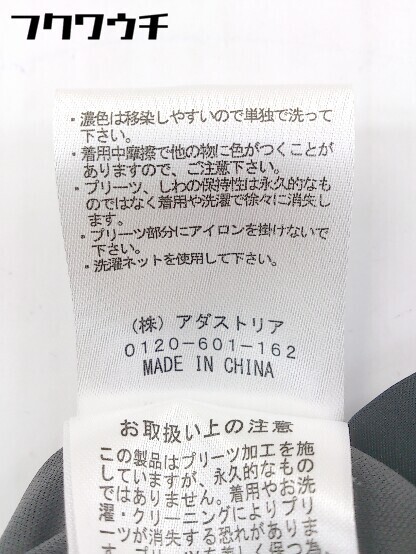 フクワウチ
・濃色は移染しやすいので単独で洗って
下さい。
・着用中摩擦で他の物に色がつくことが
ありますので、ご注意下さい。
・プリーツ、しわの保持性は永久的なも
のではなく着用や洗濯で徐々に消失し
ます。
・プリーツ部分にアイロンを掛けないで
下さい。
・洗濯ネットを使用して下さい。
(株)アダストリア
0120-601-162
MADE IN CHINA
お取扱い上の注意
この製品はプリーツ加工を施
していますが、永久的なもの
ではありません。着用や洗
濯・クリーニングによりプリ
ーツが消失する恐れがありま